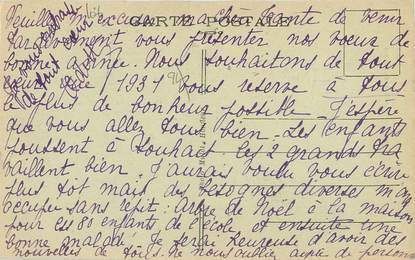 CARTE POSTALE
Veuillez m'excuser ma chère tante de venir
tardivement vous présenter nos voeux de
bonne Année. Nous souhaitons de tout
que 1931 vous réserve à tous
le plus de bonheur possible. J'espère
que vous allez tous bien. Les enfants
poussent à souhait les 2 grands tra
vaillent bien. J'aurais voulu vous écrire
plus tôt mais des besognes diverses m'ont
occupée sans répit : arbre de Noël à la maison
pour les 80 enfants de l'école et ensuite une
bonne malade. Je serai heureuse d'avoir des
nouvelles de tous. Ne nous oubliez auprès de personne